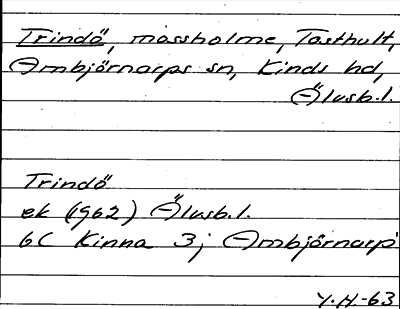 Trindö, mossholme, Tosthult,
Ambjörnarps sn, Kinds hd,
Älvsb.l.
Trindö
ek (1962) Älvsb.l.
6C Kinna 3j Ambjörnarp
Y.H.-63